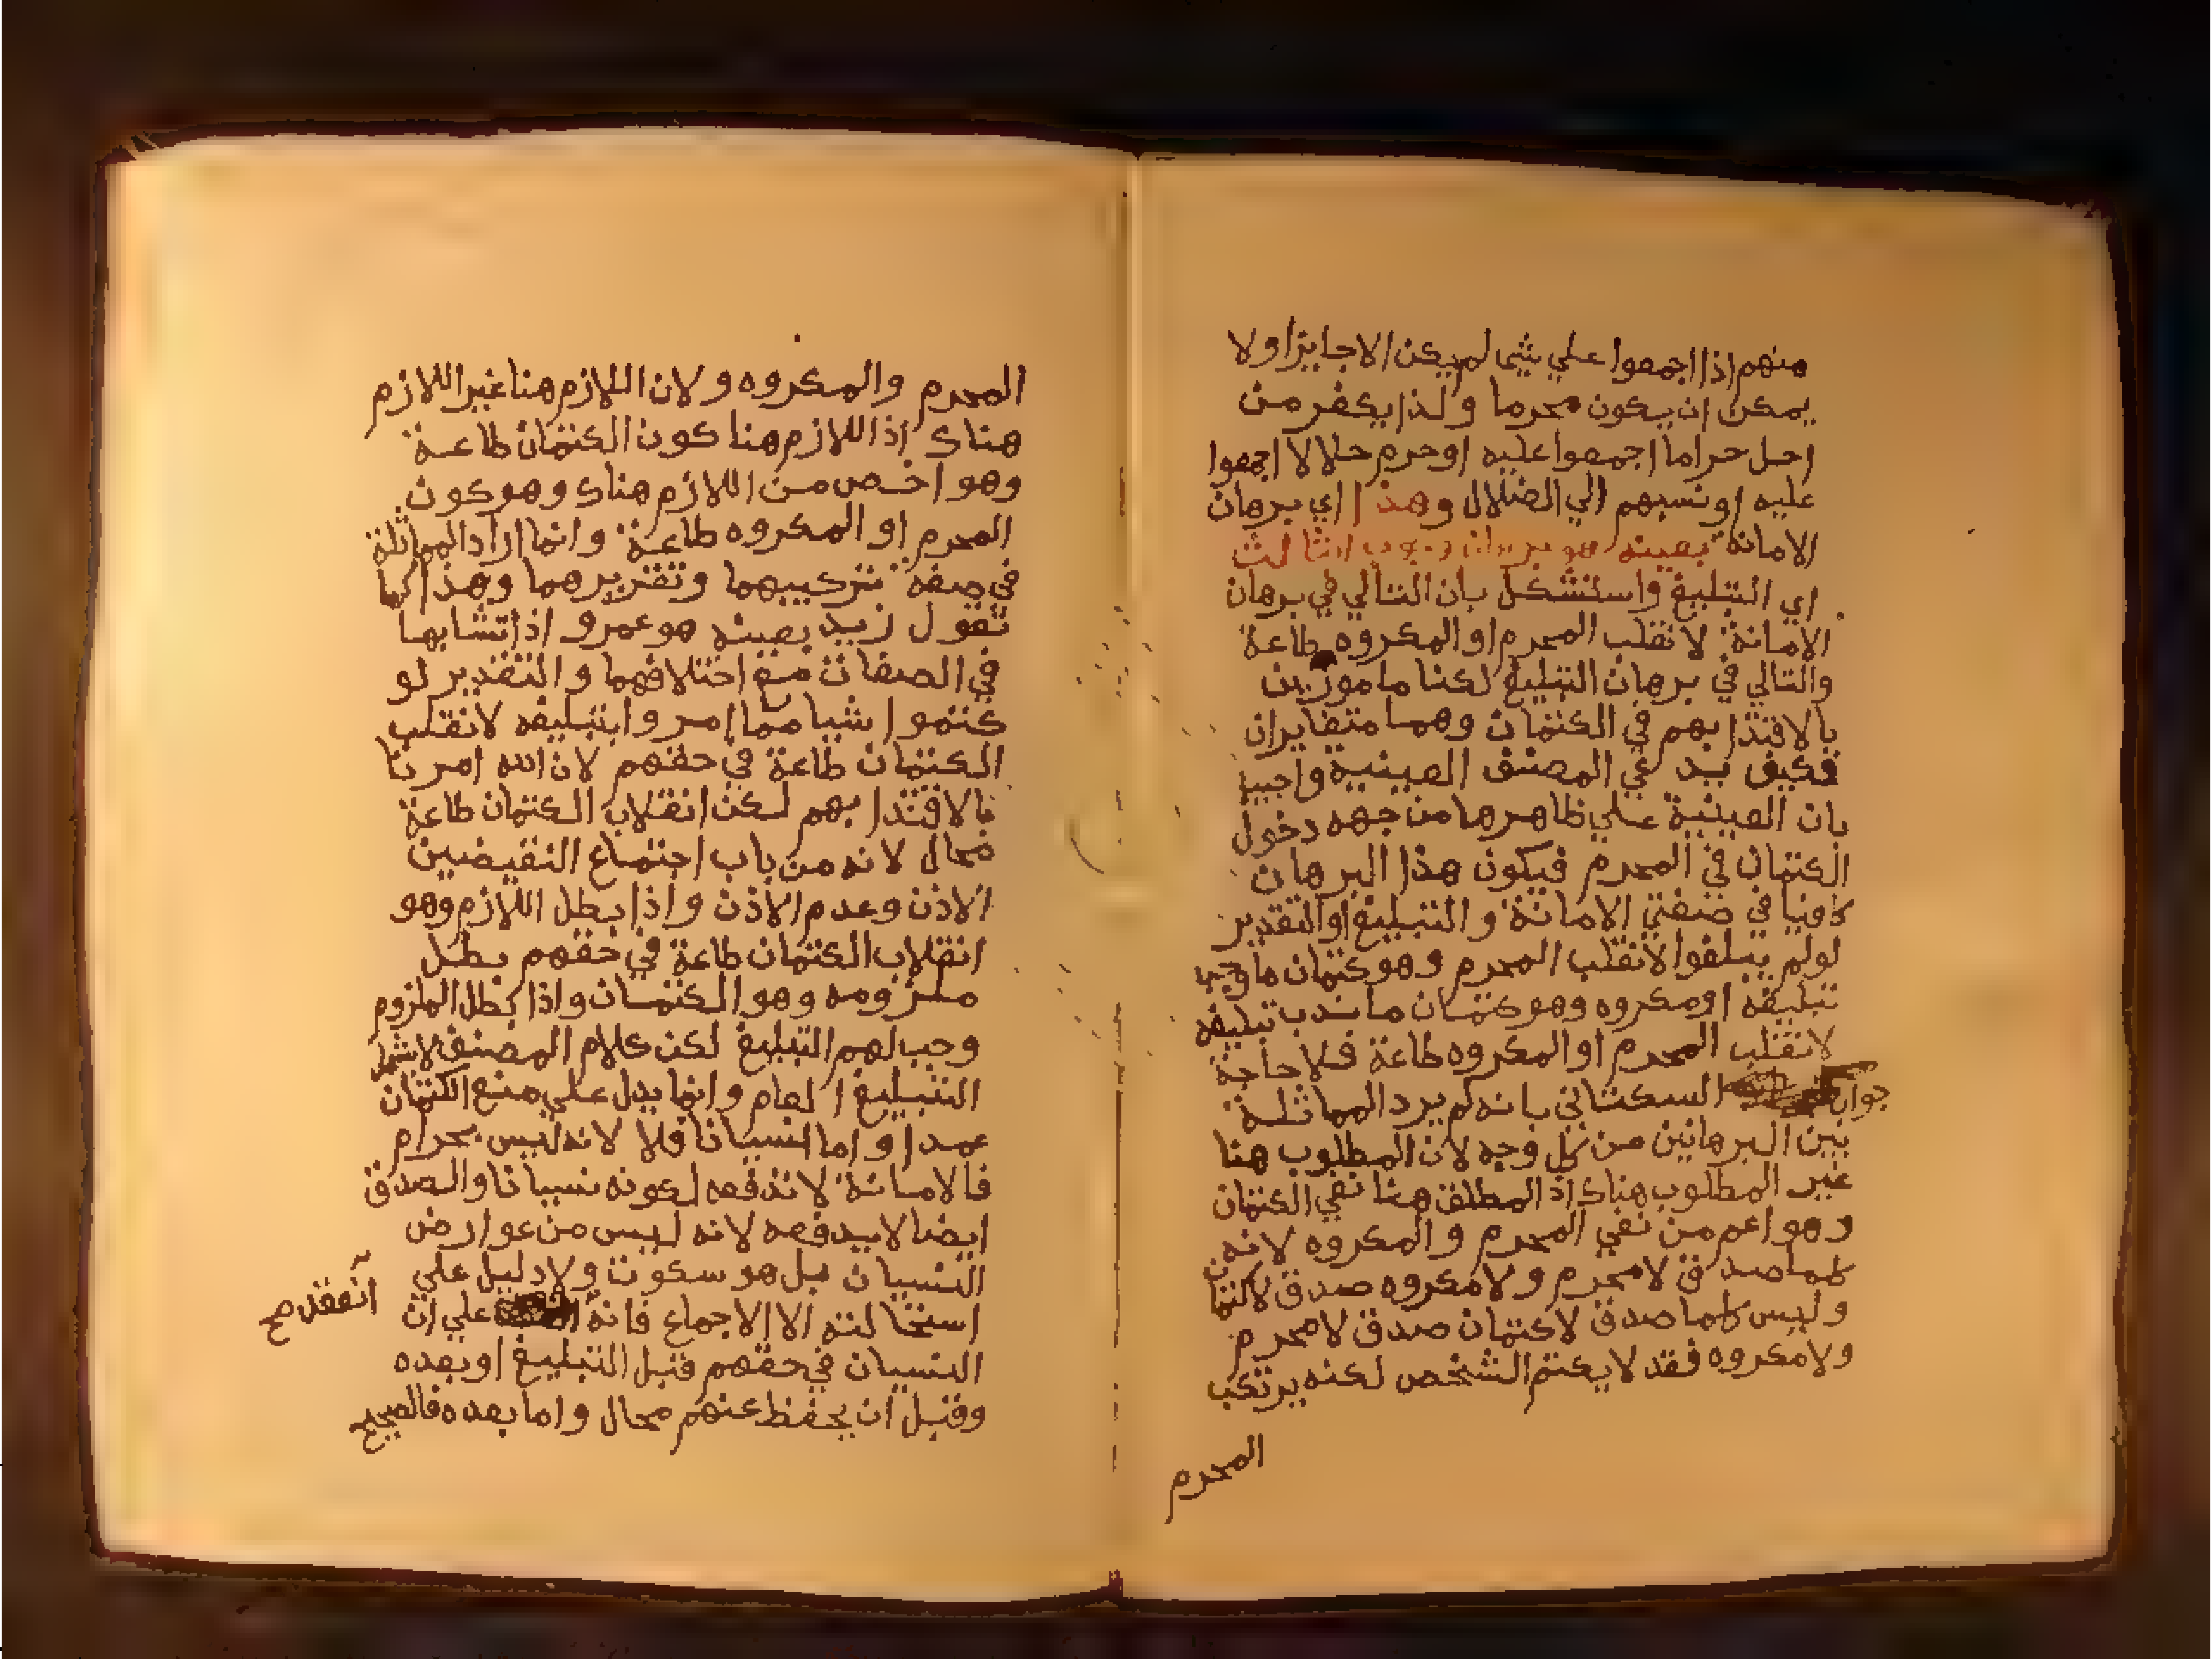 منهم اذا اجمعوا علي شي لم يكن الا جايزا ولا
يمكن ان يكون محرما ولذا يكفر من
احل حراما اجمعوا عليه او حرم حلالا اجمعوا
عليه او نسبهم الي الضلال وهذا اي برهان
الامانة بعينه هو برهان وجوب الثالث
اي التبليغ واستشكل بان التالي في برهان
الامانة لانقلب المحرم او المكروه طاعة
والتالي في برهان التبليغ لكنا مامورين
بالاقتدا بهم في الكتمان وهما متغايران
فكيف يدعي المصنف العينية واجيب
بان العينية علي ظاهرها من جهه دخول
الكتمان في المحرم فيكون هذا البرهان
كافيا في صفتي الامانة والتبليغ او التقدير
لو لم يبلغوا لانقلب المحرم وهو كتمان ما وجب
تبليغه او مكروه وهو كتمان ما ندب تبليغه
لانقلب المحرم او المكروه طاعة فلا حاجة
جواب السكتاني بانه لم يرد المماثلة
بين البرهانين من كل وجه لان المطلوب هنا
غير المطلوب هناك اذ المطلق هنا نفي الكتمان
وهو اعم من نفي المحرم والمكروه لانه
كلما صدق لا محرم ولا مكروه صدق لا كتمان
وليس كلما صدق لا كتمان صدق لا محرم
ولا مكروه فقد لا يكتم الشخص لكنه يرتكب
المحرم
المحرم والمكروه ولان اللازم هنا غير اللازم
هناك اذ اللازم هنا كون الكتمان طاعة
وهو اخص من اللازم هناك وهو كون
المحرم او المكروه طاعة وانما اراد المماثلة
في صفة تركيبهما وتقريرهما وهذا كما
تقول زيد بعينه هو عمرو اذا تشابها
في الصفات مع اختلافهما والتقدير لو
كتموا شيا مما امروا بتبليغه لانقلب
الكتمان طاعة في حقهم لان الله امرنا
بالاقتدا بهم لكن انقلاب الكتمان طاعة
محال لانه من باب اجتماع النقيضين
الاذن وعدم الاذن واذا بطل اللازم وهو
انقلاب الكتمان طاعة في حقهم بطل
ملزومه وهو الكتمان واذا بطل الملزوم
وجب لهم التبليغ لكن كلام المصنف لا يشمل
التبليغ العام وانما يدل علي منع الكتمان
عمدا واما نسيانا فلا لانه ليس بحرام
فالامانة لا تدفعه لكونه نسيانا والصدق
ايضا لا يدفعه لانه ليس من عوارض
النسيان بل هو سكوت ولا دليل علي
استحالته الا الاجماع فانه علي ان
انعقد صح
النسيان في حقهم قبل التبليغ او بعده
وقبل ان يحفظ عنهم محال واما بعده فالصحيح